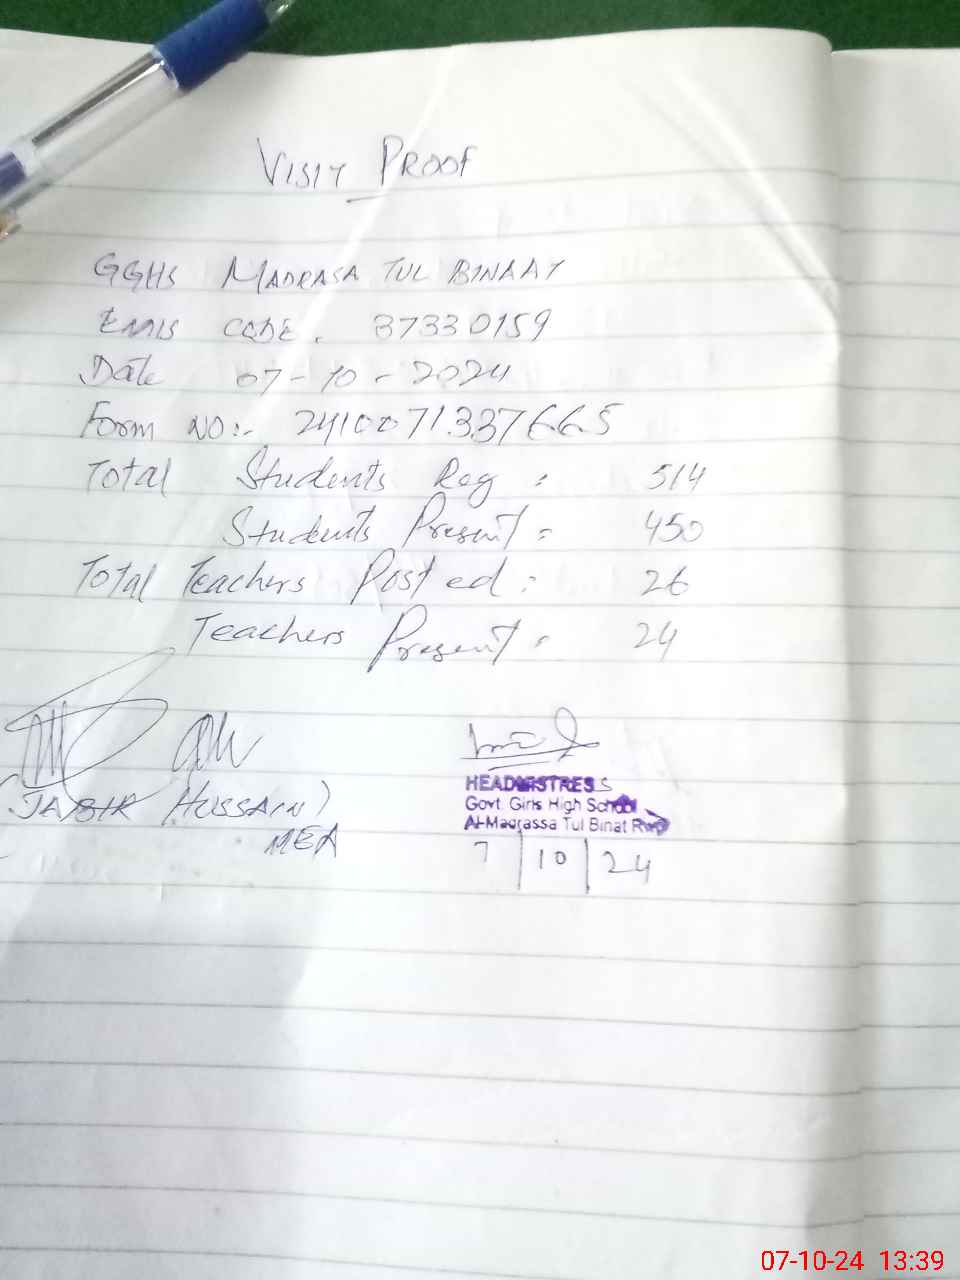 VISIT PROOF
GGHS MADRASA TUL BINAAT
EMIS CODE. 37330159
Date 07-10-2024
Form NO:- 2410071337665
Total Students Reg : 514
Students Present : 450
Total Teachers Posted : 26
Teachers Present : 24
(JABIR HUSSAIN)
MEA
HEADMISTRESS
Govt. Girls High School
Al-Madrassa Tul Binat Rwp
7 | 10 | 24
07-10-24 13:39